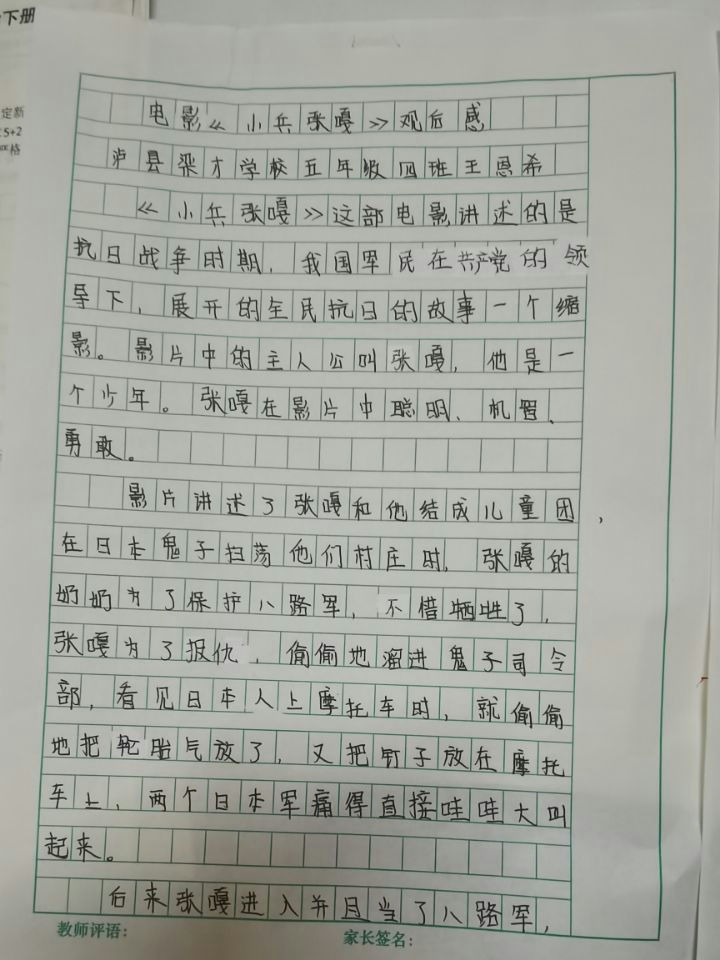 下册
定新
5+2
严格
电影《小兵张嘎》观后感
泸县梁才学校五年级四班王恩希
《小兵张嘎》这部电影讲述的是
抗日战争时期，我国军民在共产党的领
导下，展开的全民抗日的故事一个缩
影。影片中的主人公叫张嘎，他是一
个少年。张嘎在影片中聪明、机智、
勇敢。
影片讲述了张嘎和他结成儿童团，
在日本鬼子扫荡他们村庄时，张嘎的
奶奶为了保护八路军，不惜牺牲了，
张嘎为了报仇，偷偷地溜进鬼子司令
部，看见日本人上摩托车时，就偷偷
地把轮胎气放了，又把钉子放在摩托
车上，两个日本军痛得直接哇哇大叫
起来。
后来张嘎进入并且当了八路军，
教师评语：
家长签名：